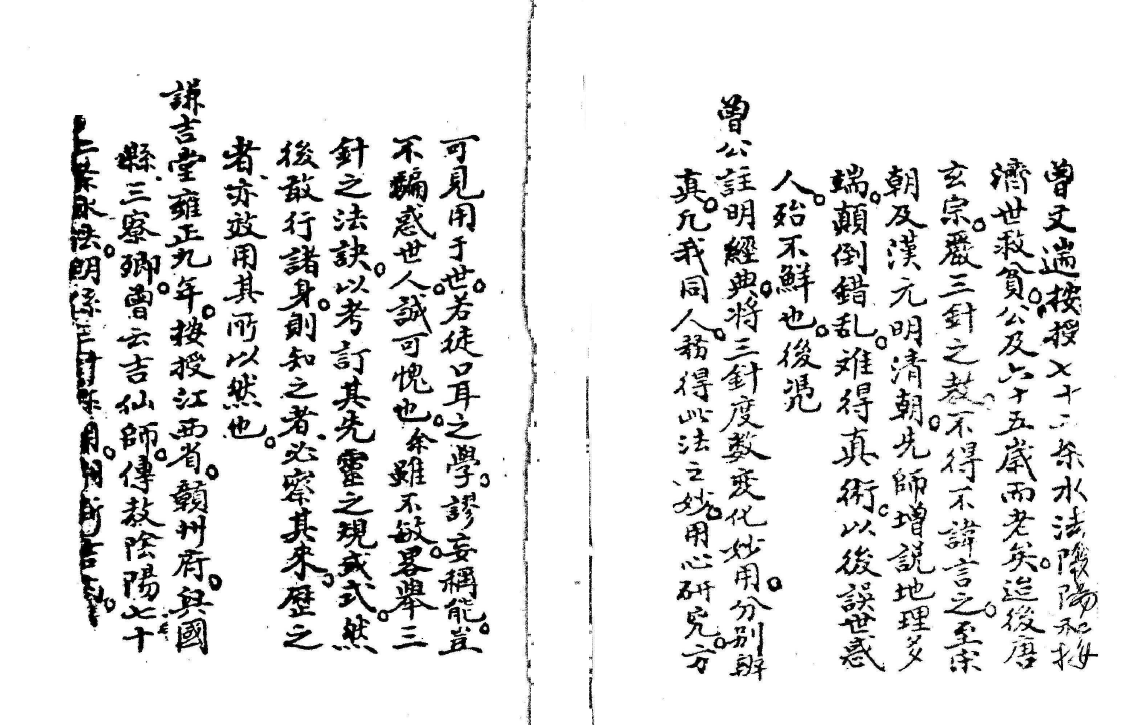 曾文遄按授七十二条水法陰陽和按
濟世救貧。公及六十五歲而老矣。迨後唐
玄宗。嚴三針之教。不得不諱言之。至宋
朝及漢元明清朝。先師增説地理多
端。顛倒錯乱。难得真術。以後誤世惑
人。殆不鮮也。後憑
曾公註明經典。將三針度数変化妙用。分别辨
真。凡我同人。務得此法之妙。用心研究。方
可見用于世。若徒口耳之學。謬妄稱能。豈
不騙惑世人。誠可愧也。余雖不敏。畧舉三
針之法訣。以考訂其先靈之現或式。然
後敢行諸身。則知之者。必察其来歴之
者。亦效用其所以然也。
謙吉堂雍正九年。按授江西省。贛州府。興國
縣三寮鄉。曾云吉仙師。傳教陰陽七十
二条水法。明系三針